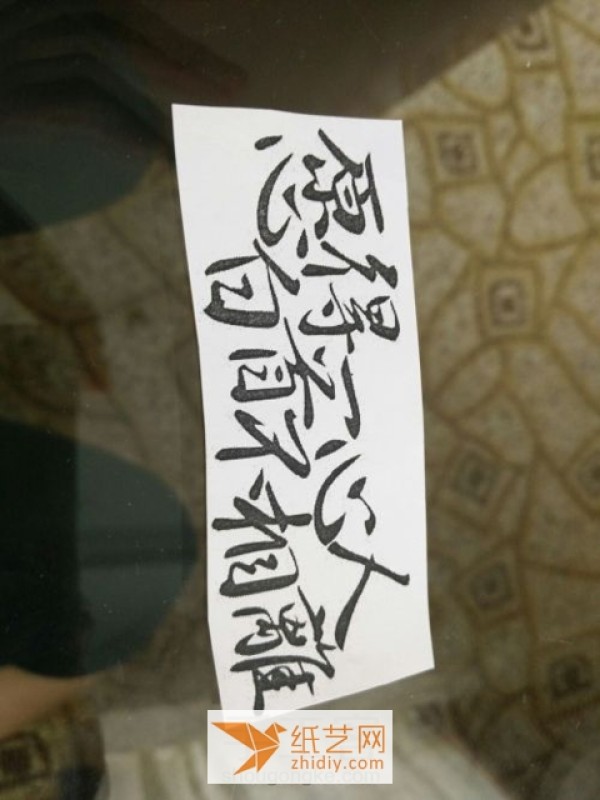 愿得一心人
白首不相離
纸艺网
zhidiy.com
shougongke.com